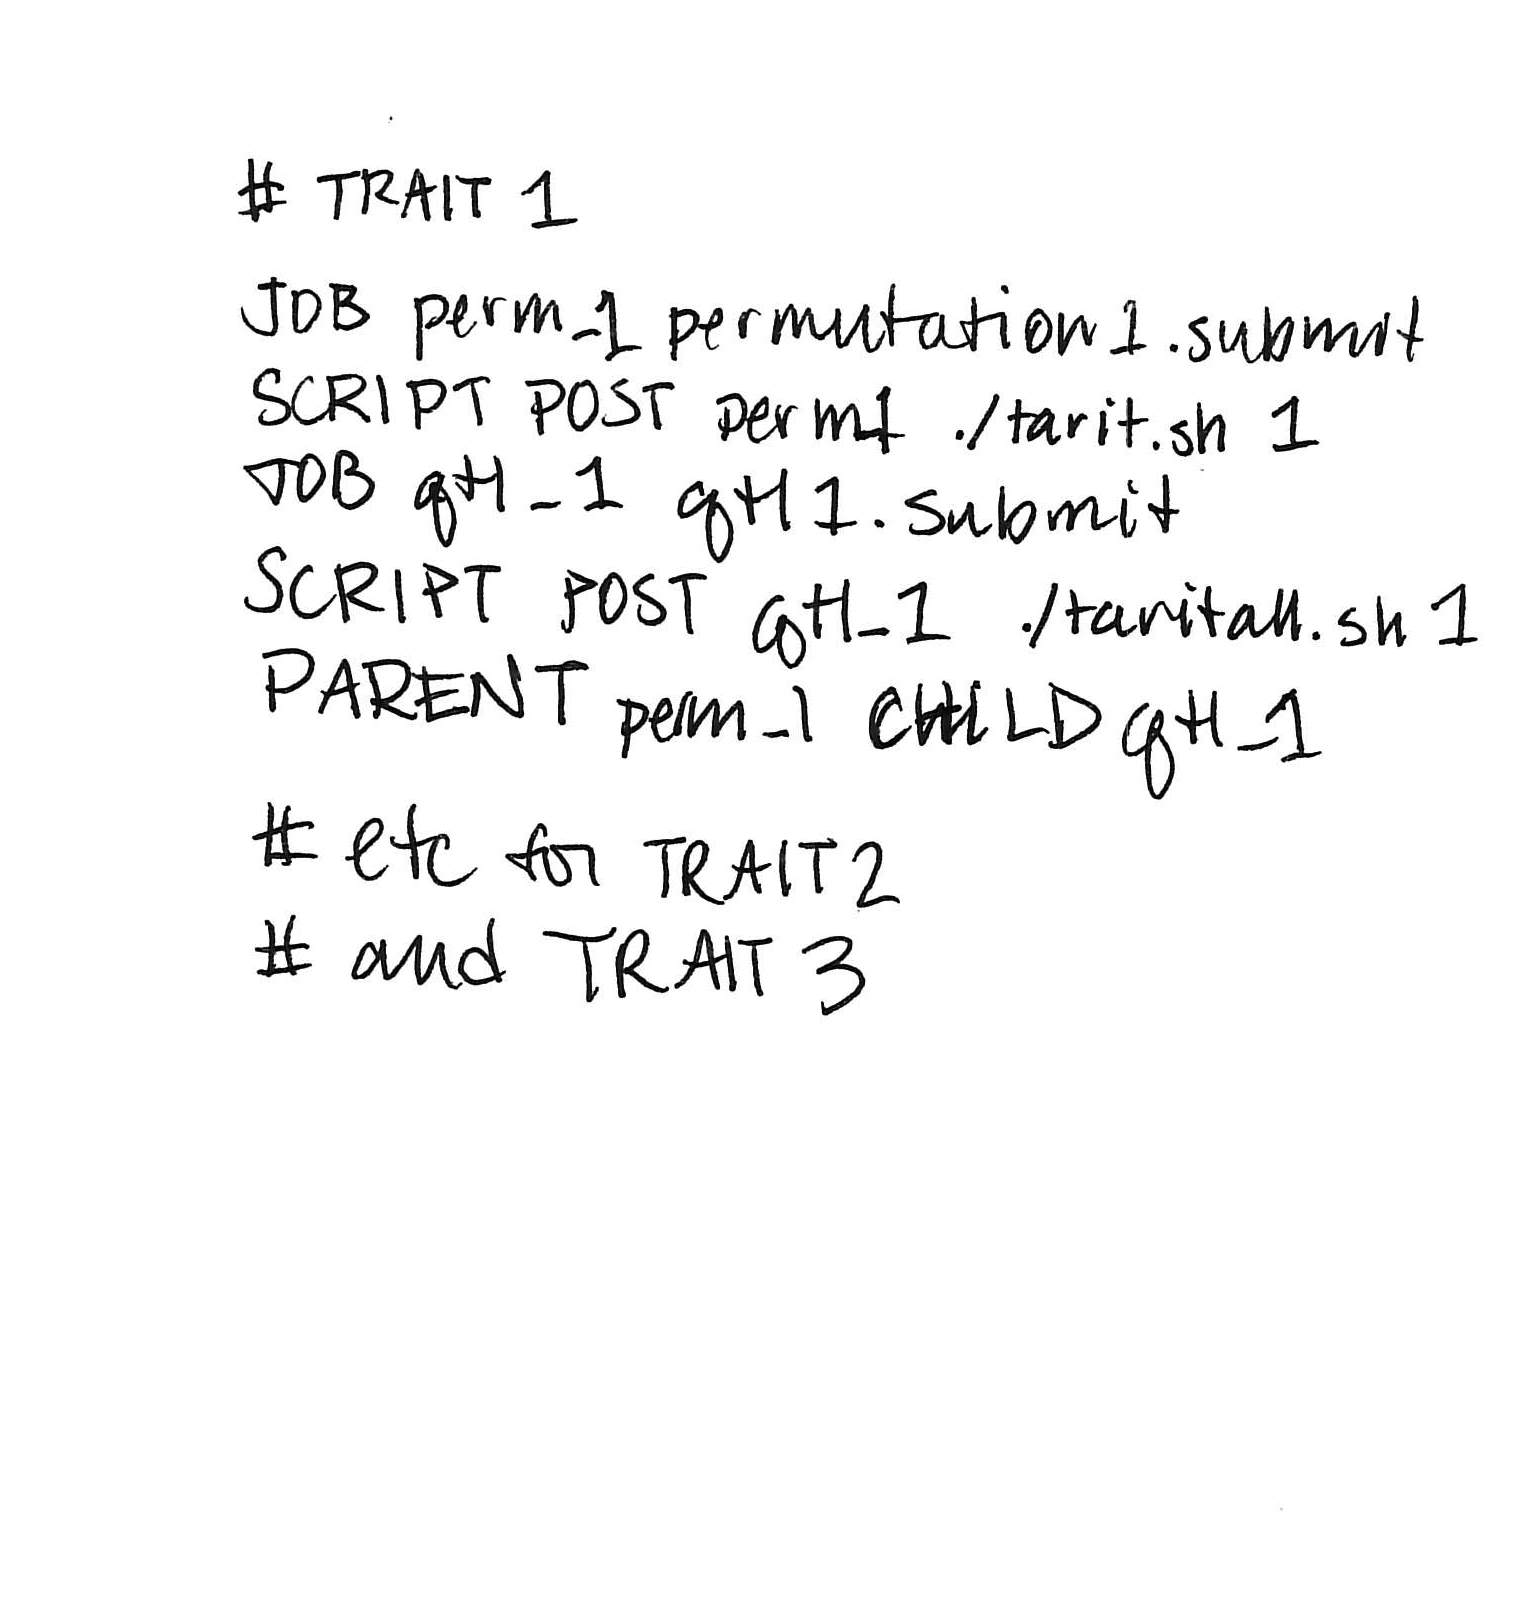 # TRAIT 1
JOB perm_1 permutation1.submit
SCRIPT POST perm1 ./tarit.sh 1
JOB qtl_1 qtl1.submit
SCRIPT POST qtl_1 ./taritall.sh 1
PARENT perm_1 CHILD qtl_1
# etc for TRAIT 2
# and TRAIT 3